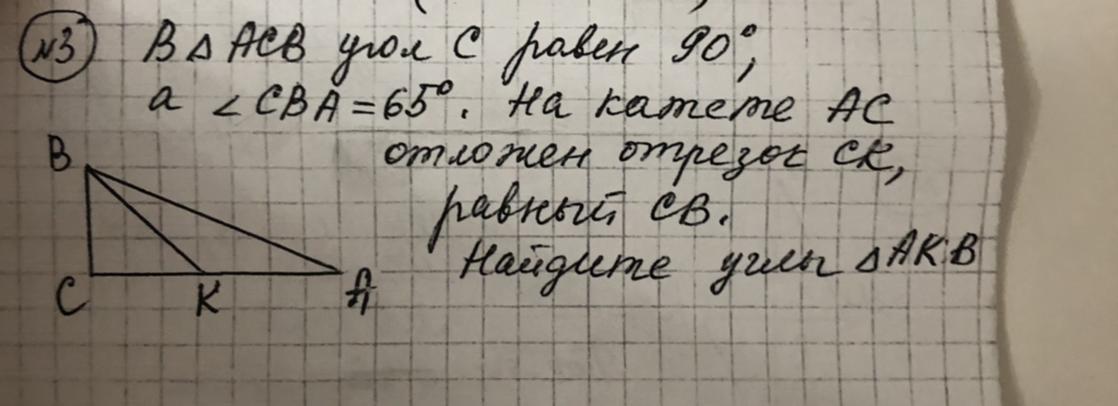 №3 В △ ACB угол C равен 90°,
а ∠CBA = 65°. На катете AC
отложен отрезок CK,
равный CB.
Найдите углы △AKB
B
C K A